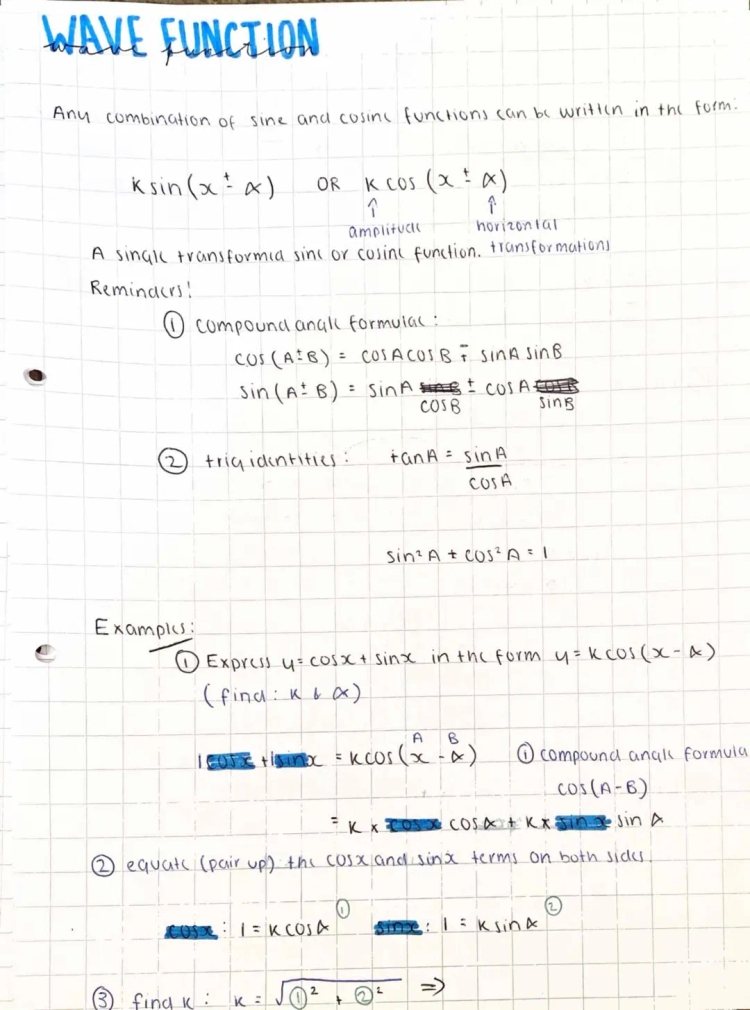 WAVE FUNCTION
wave function
Any combination of sine and cosine functions can be written in the form:
k sin(x ± α) OR k cos (x ± α)
↑ ↑
amplitude horizontal
A single transformed sine or cosine function. transformations
Reminders!
① compound angle formulae:
cos (A ± B) = cosAcosB ∓ sinA sinB
sin (A ± B) = sinA ± cosA
cosB sinB
② trig identities: tanA = sinA
cosA
sin²A + cos²A = 1
Examples:
① Express y = cosx + sinx in the form y = kcos(x - α)
(find: k & α)
A B
1cosx + 1sinx = kcos(x - α) ① compound angle formula
cos(A-B)
= k x cos x cosα + k x sin x sin α
② equate (pair up) the cosx and sinx terms on both sides.
cosx: 1 = kcosα ① sinx: 1 = ksinα ②
③ find k: k = √①² + ②² ⇒